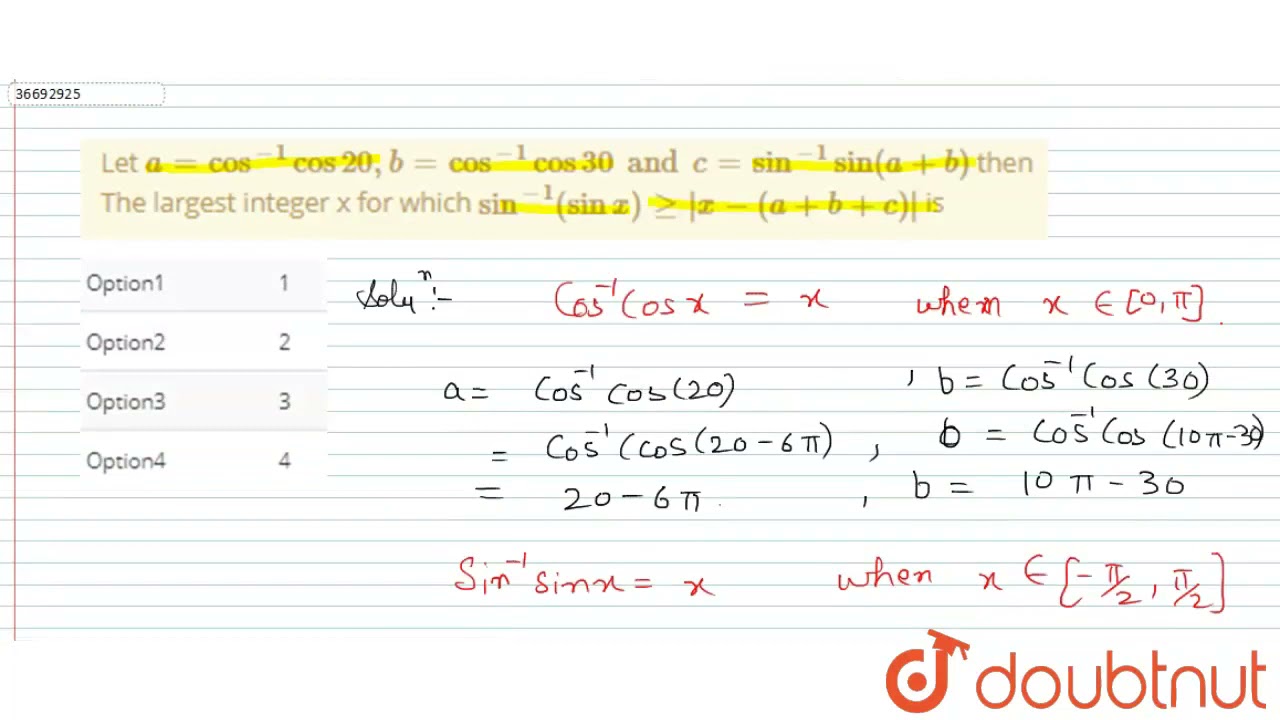 36692925
Let a = cos⁻¹ cos 20, b = cos⁻¹ cos 30 and c = sin⁻¹ sin(a + b) then
The largest integer x for which sin⁻¹(sin x) ≥ |x − (a + b + c)| is
Option1 1
Option2 2
Option3 3
Option4 4
Soluⁿ :-
Cos⁻¹ Cos x = x when x ∈ [0, π].
a = Cos⁻¹ Cos (20) , b = Cos⁻¹ Cos (30)
= Cos⁻¹ (Cos (20 − 6π) , b = Cos⁻¹ Cos (10π − 30)
= 20 − 6π , b = 10π − 30
Sin⁻¹ sin x = x when x ∈ [−π/2, π/2]
doubtnut